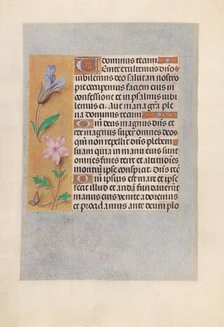 dominus tecum
Venite exultemus dño
iubilemus deo salutari nostro
preoccupemus faciem eius in
confessione et in psalmis iubile
mus ei. Aue maria gra ple
na dominus tecum
Quoniam deus magnus dñs et
rex magnus super omnes deos
quoniam non repellet dñs plebem
suam quia in manu eius sunt
omnes fines terre et altitudines
montium ipse conspicit. Dñs te
Quoniam ipsius est mare et ipse
fecit illud et aridam
et procidamus ante deum plo